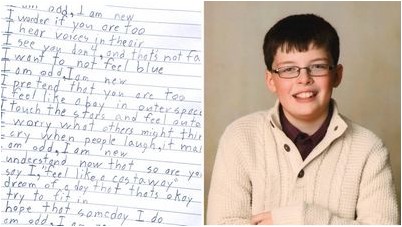 am odd, I am new
I wonder if you are too
hear voices in their
I see you don't, and that's not fa
want to not feel blue
am odd, I am new
I pretend that you are too
feel like a boy in outer space
I touch the stars and feel
I worry what others might thi
cry when people laugh, it ma
am odd, I am new
understand now that so are yo
say I, "feel like a castaway"
dream of a day that thats okay
try to fit in
hope that someday I do
am odd, I am new